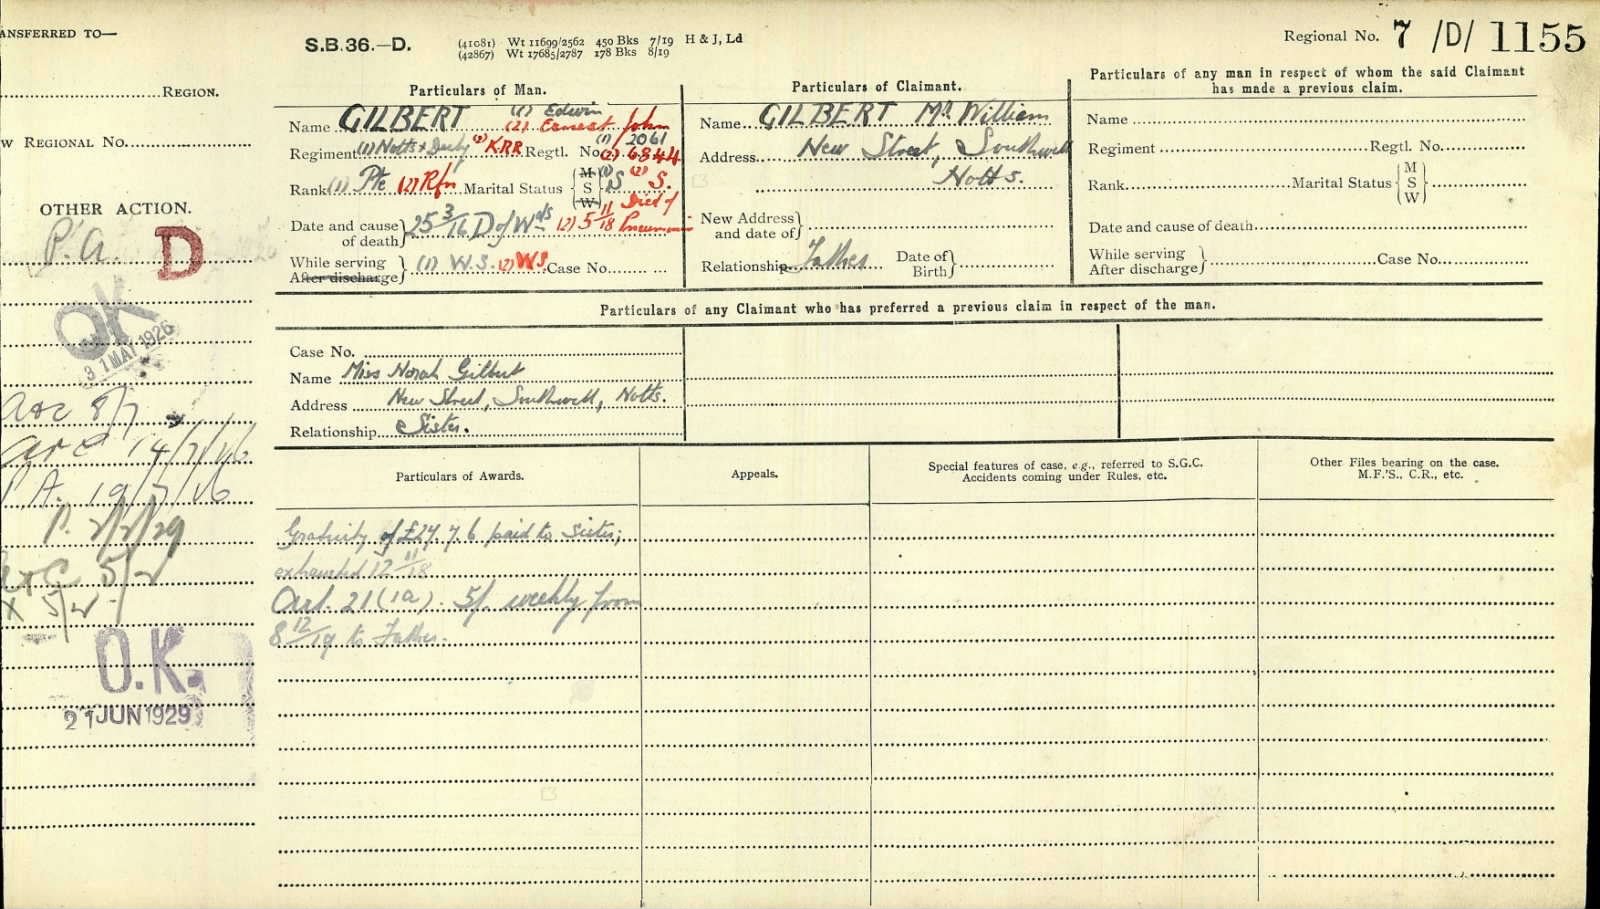 ANSFERRED TO—
REGION.
w REGIONAL No.
OTHER ACTION.
P.A. D
OK
31 MAY 1926
8/7
14/7/16
P.A. 19/7/16
P. 2/2/29
5/2
x 5/2
O.K.
21 JUN 1929
S.B.36.—D.
(41081) Wt 11699/2562 450 Bks 7/19 H & J, Ld
(42867) Wt 17685/2787 178 Bks 8/19
Regional No. 7 /D/ 1155
Particulars of Man.
Name GILBERT (1) Edwin
(2) Ernest John
Regiment (1) Notts & Derby (2) KRR Regtl. No. (1) 2061
(2) 6844
Rank (1) Pte (2) Rfn Marital Status { M S W (1) S (2) S.
Date and cause of death } 25 3/16 D of Wds (2) 5 11/18 Died of Pneumonia
While serving
After discharge } (1) W.S. (2) W.S. Case No.
Particulars of Claimant.
Name GILBERT Mr William
Address New Street, Southwell
Notts.
New Address
and date of }
Relationship Father Date of Birth }
Particulars of any man in respect of whom the said Claimant
has made a previous claim.
Name
Regiment Regtl. No.
Rank Marital Status { M S W }
Date and cause of death
While serving
After discharge } Case No.
Particulars of any Claimant who has preferred a previous claim in respect of the man.
Case No.
Name Miss Norah Gilbert
Address New Street, Southwell, Notts.
Relationship Sister.
Particulars of Awards.
Appeals.
Special features of case, e.g., referred to S.G.C.
Accidents coming under Rules, etc.
Other Files bearing on the case.
M.F.'S., C.R., etc.
Gratuity of £24.7.6 paid to Sister;
exhausted 12 11/18
Art. 21 (1a). 5/. weekly from
8 12/19 to Father.